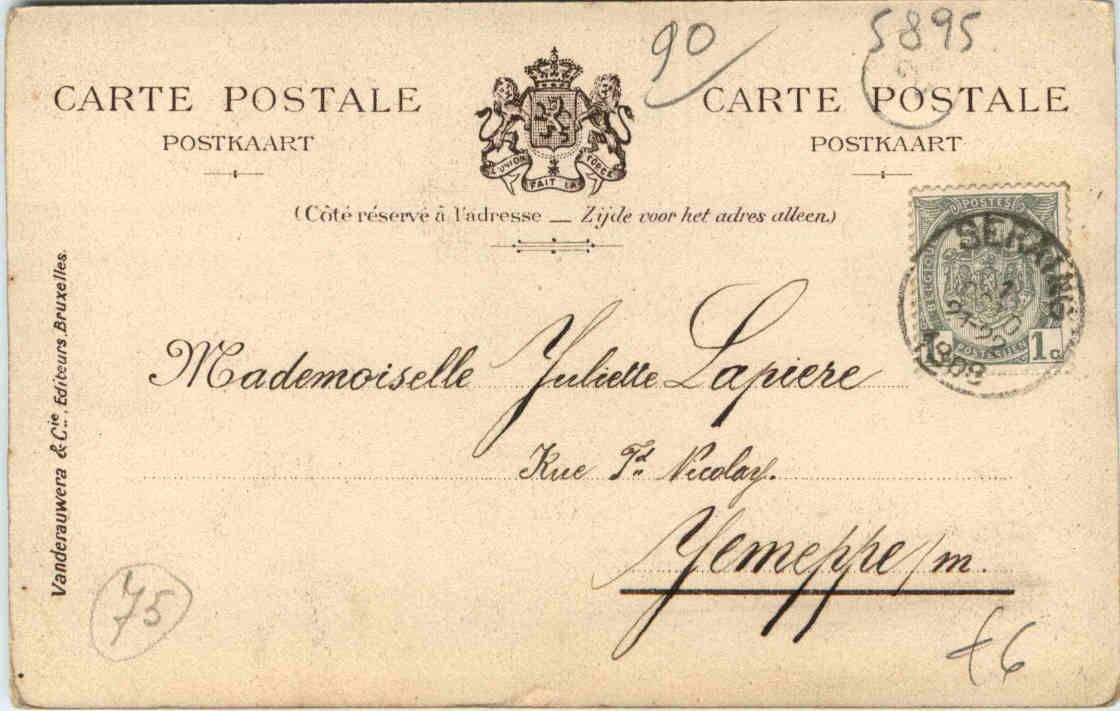 90
5895
CARTE POSTALE
POSTKAART
CARTE POSTALE
POSTKAART
L'UNION FAIT LA FORCE
(Côté réservé à l'adresse — Zijde voor het adres alleen.)
POSTES
BELGIQUE
POSTERIJEN
1c
SERAING
21-22
1899
Vanderauwera & Cie, Editeurs, Bruxelles.
Mademoiselle Juliette Lapiere
Rue Fd Nicolay.
Jemeppe/m.
75